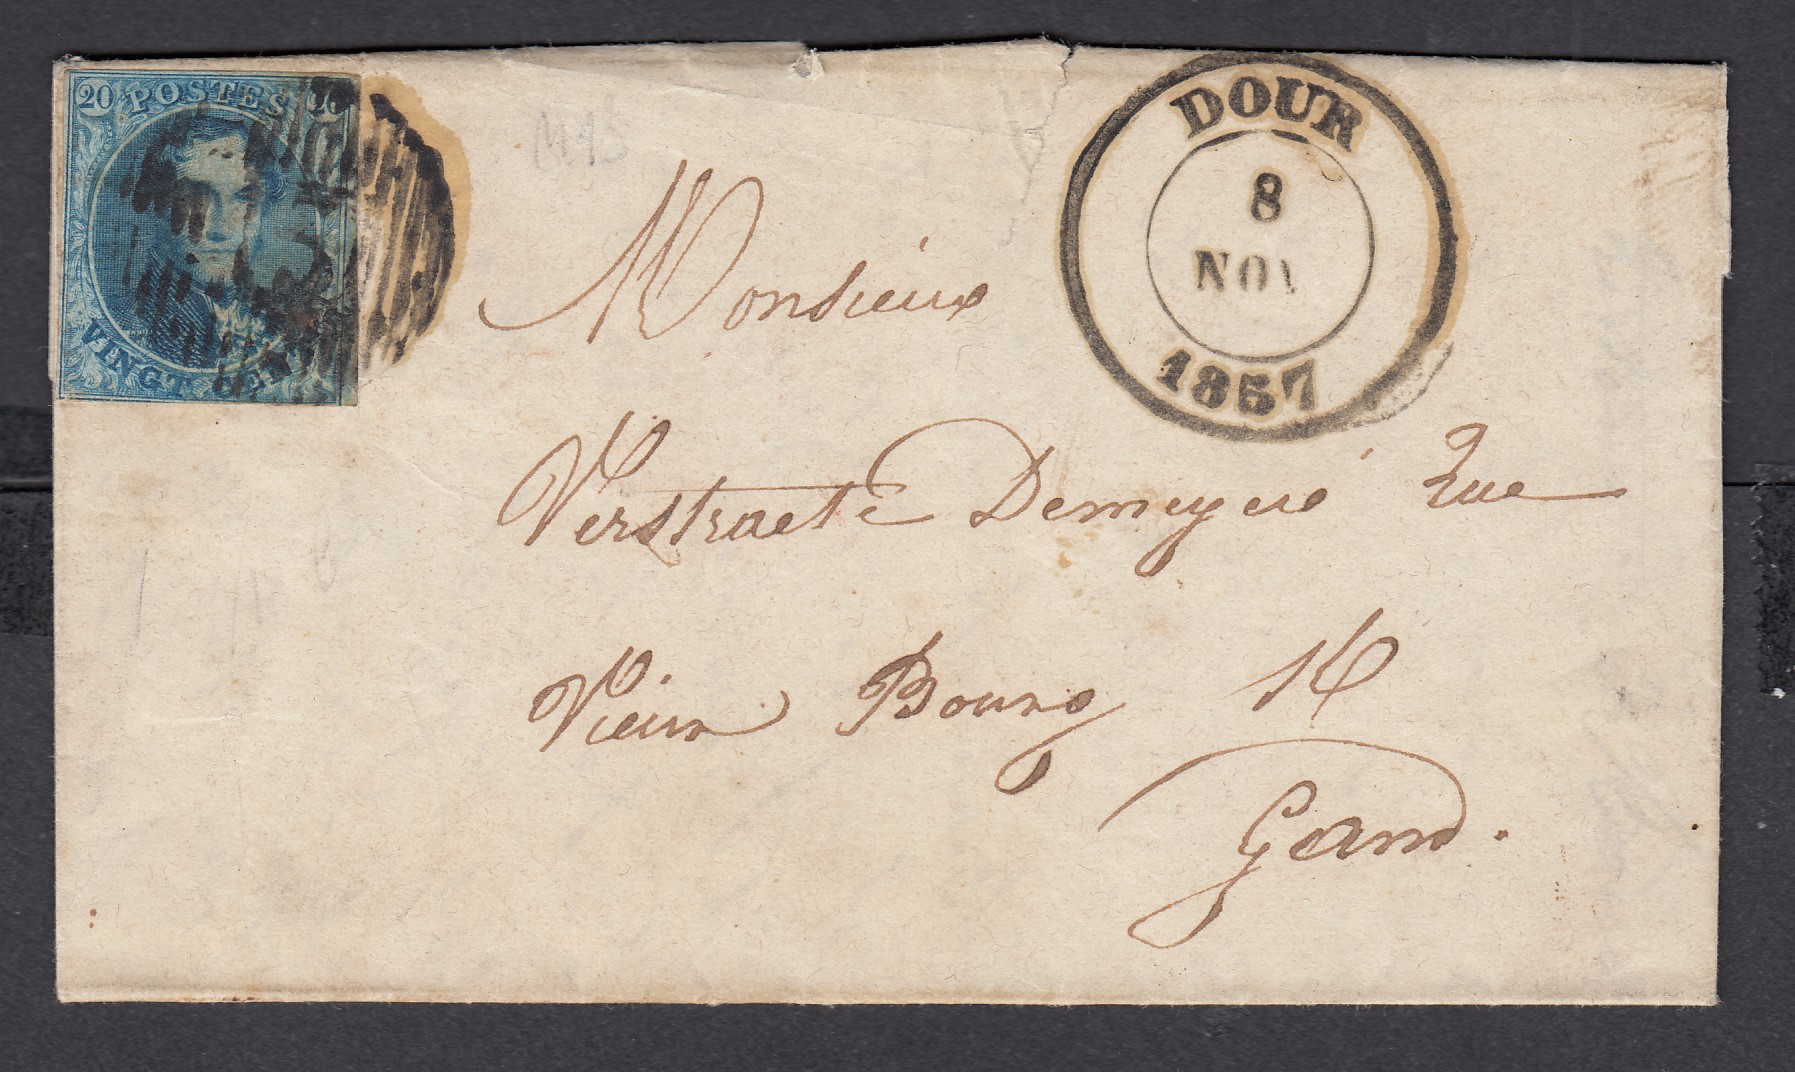 20 POSTES 20
VINGT CENT
DOUR
8
NOV
1857
Monsieur
Verstraete Demeyere Rue
Vieux Bourg 16
Gand.